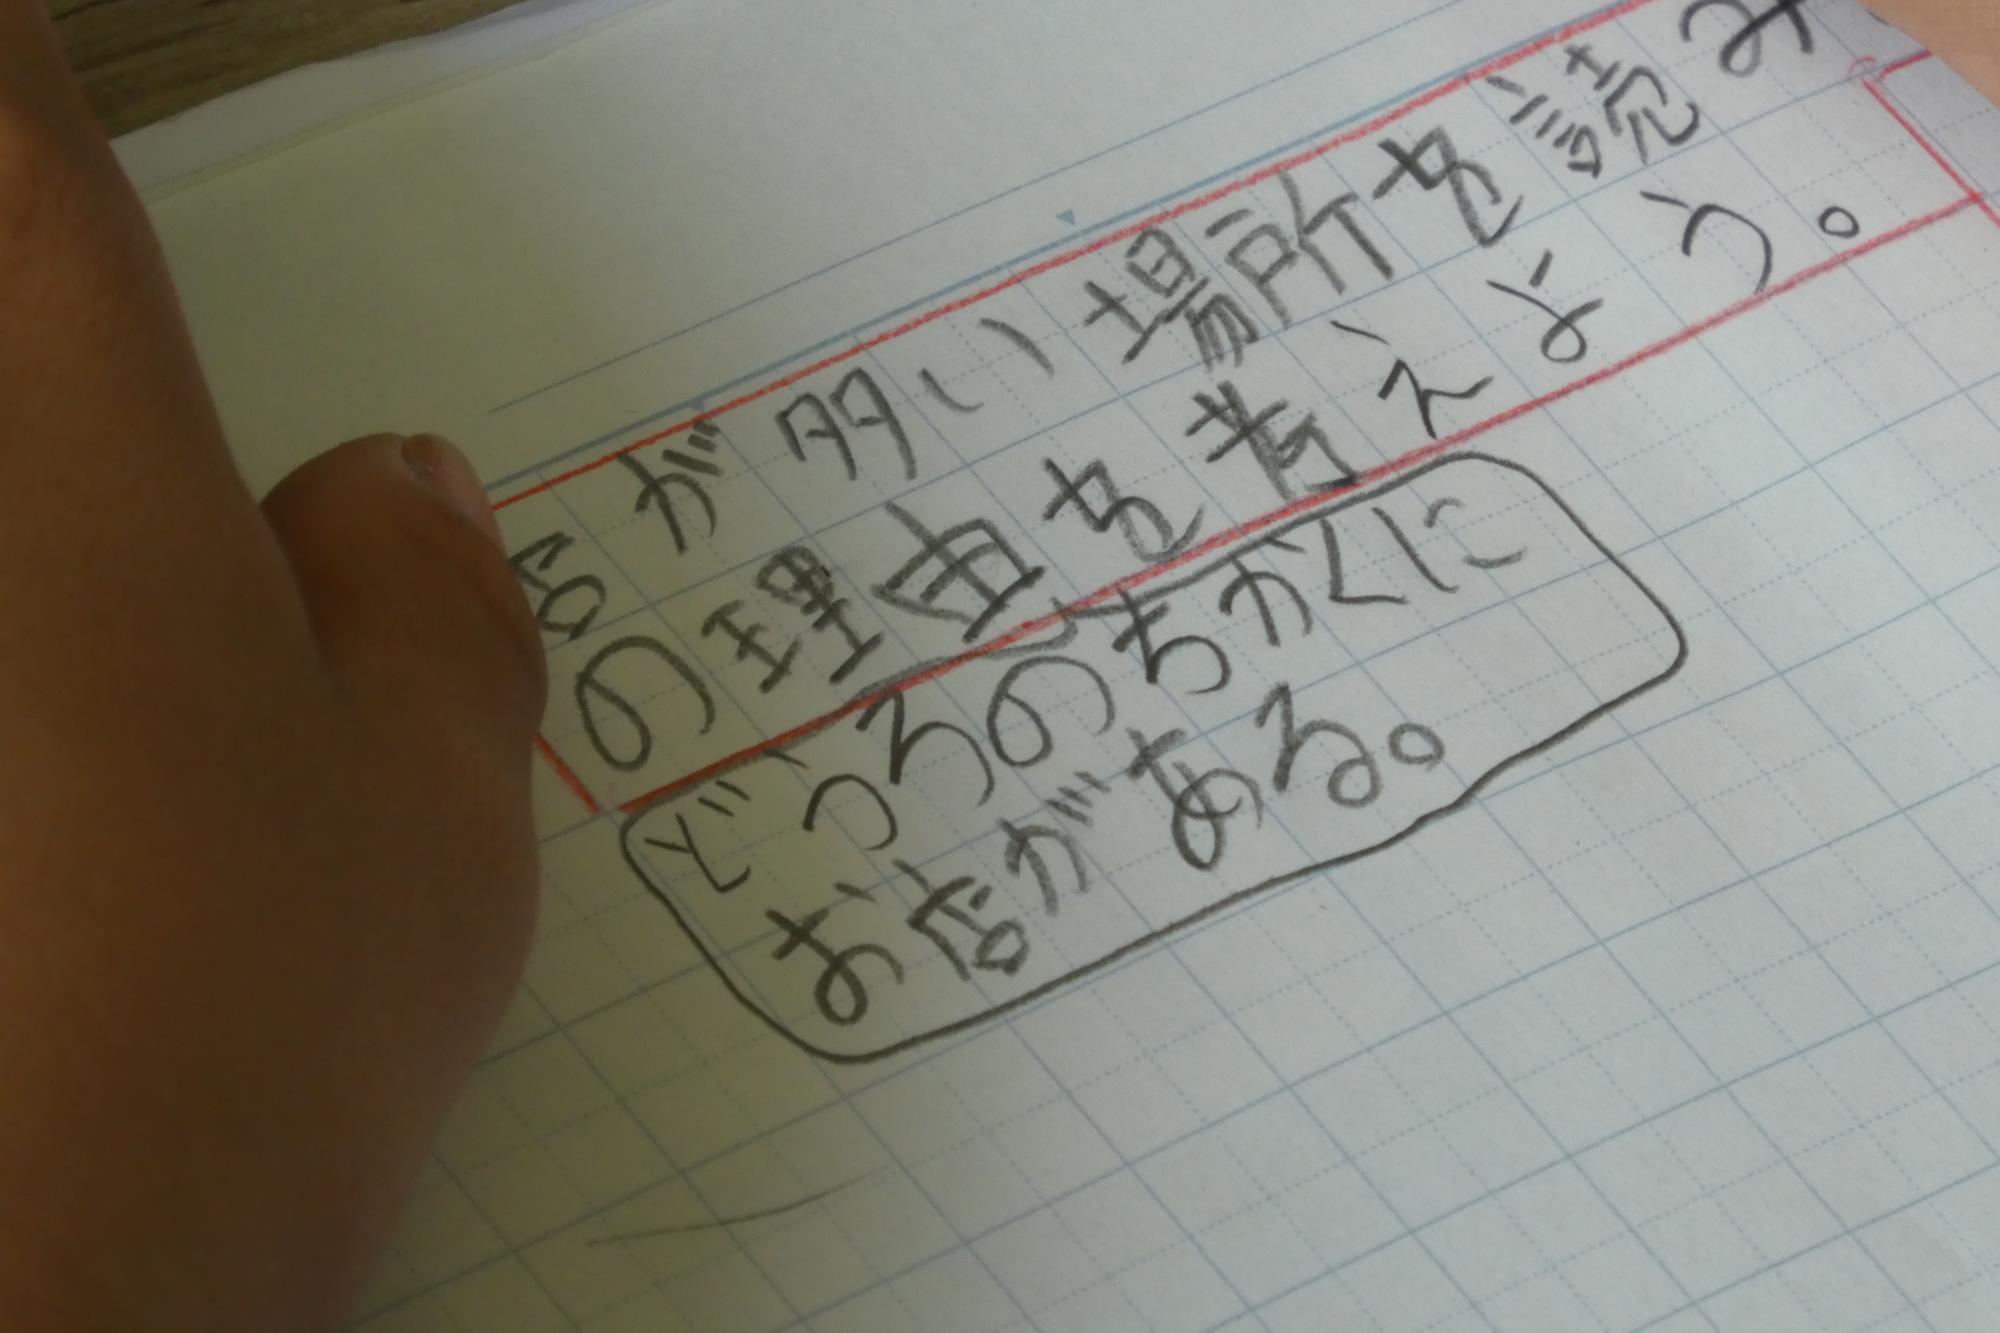 店が多い場所を読み
の理由を考えよう。
どうろのちかくに
お店がある。